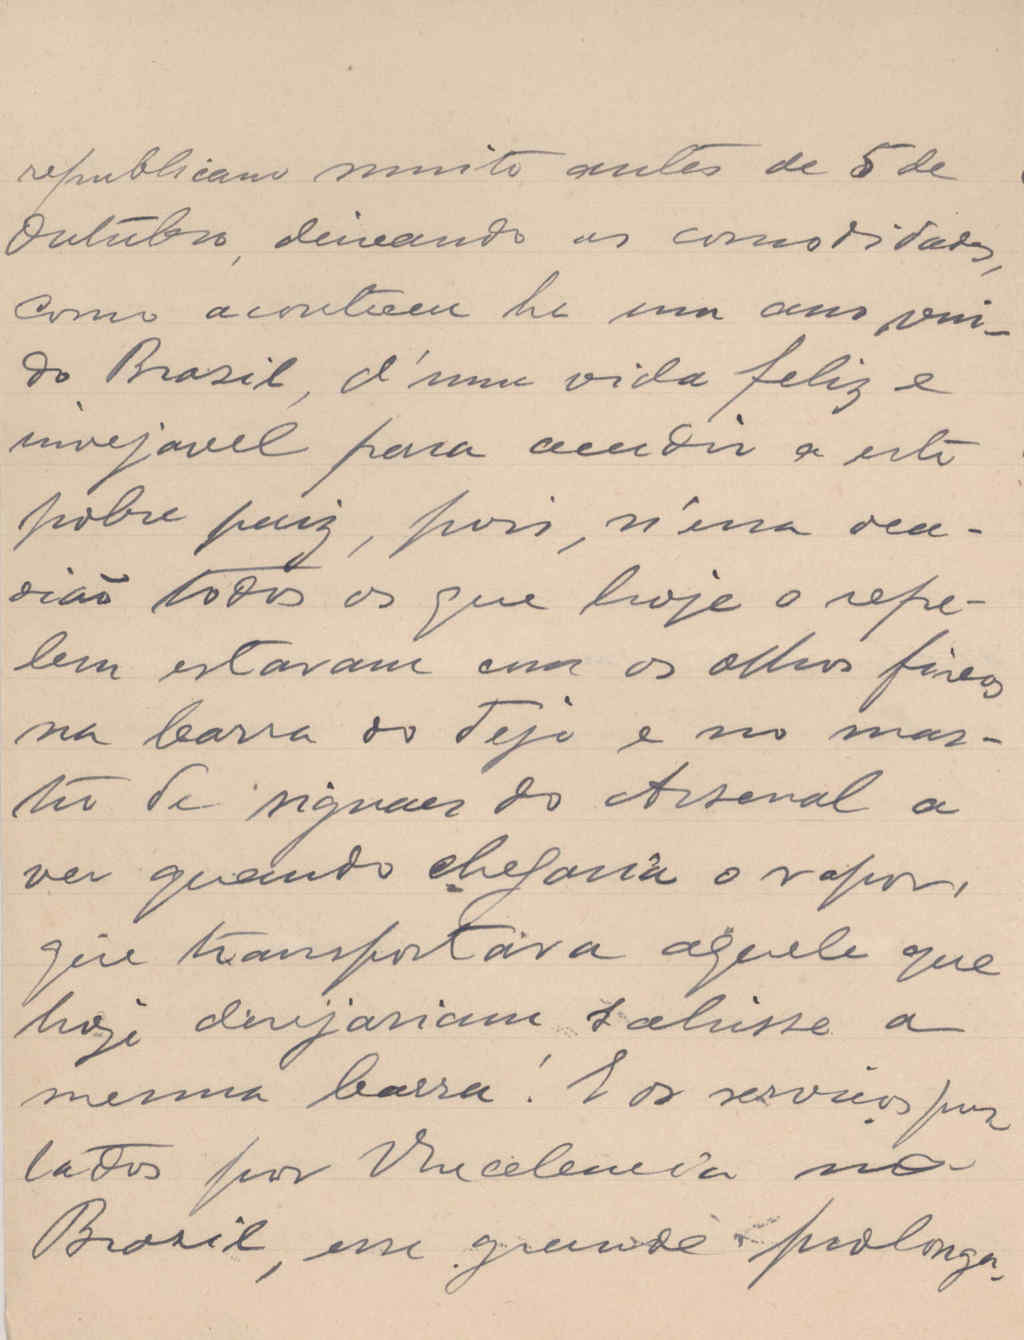 republicano muito antes de 5 de
Outubro, deixando as comodidades,
como aconteceu ha um ano, vin-
do Brazil, d'uma vida feliz e
invejavel para acudir a este
pobre paiz, pois, n'essa oca-
sião todos os que hoje o repe-
lem estavam com os olhos fixos
na barra do Tejo e no mas-
tro de signaes do Arsenal a
ver quando chegaria o vapor,
que transportava aquele que
hoje desejariam sahisse a
mesma barra! E os serviços pres
tados por Vexcelencia no
Brazil, esse grande prolonga-